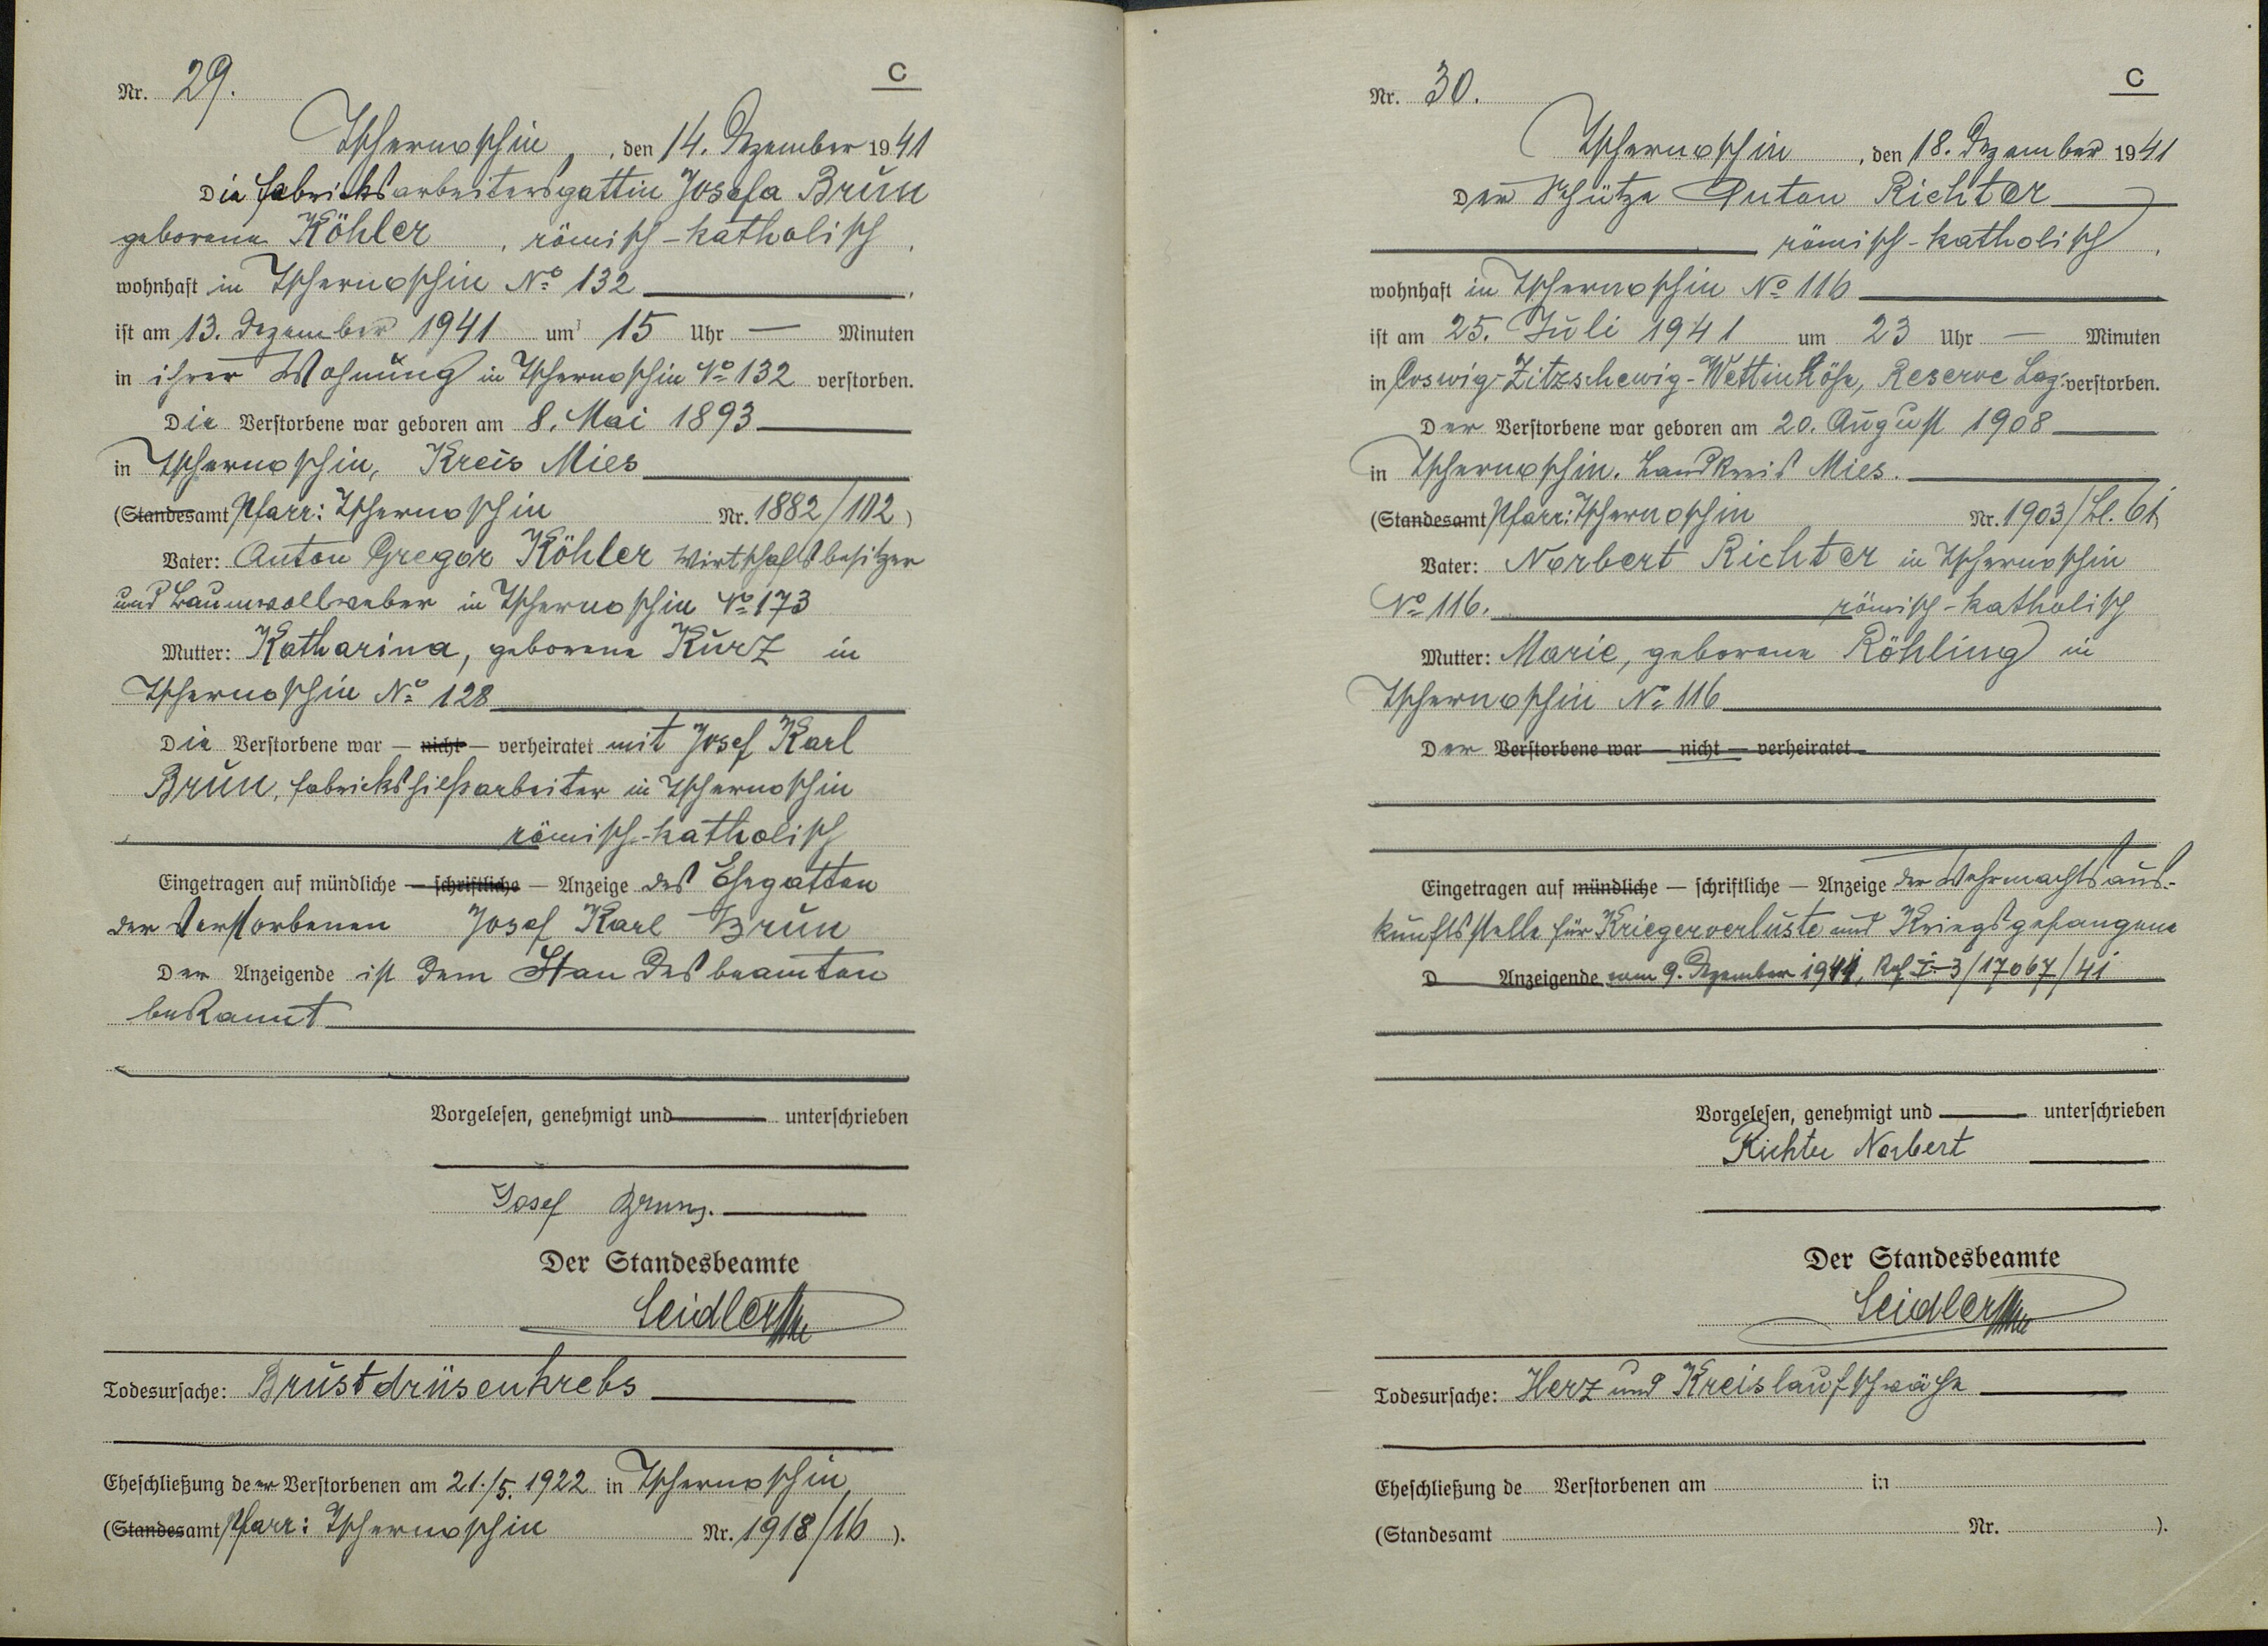 C
Nr. 29.
Tschernoschin, den 14. Dezember 1941
Die Fabriksarbeitersgattin Josefa Brun
geborene Köhler, römisch-katholisch,
wohnhaft in Tschernoschin No 132,
ist am 13. Dezember 1941 um 15 Uhr — Minuten
in ihrer Wohnung in Tschernoschin No 132 verstorben.
Die Verstorbene war geboren am 8. Mai 1893
in Tschernoschin, Kreis Mies
(Standesamt Pfarr: Tschernoschin Nr. 1882/102)
Vater: Anton Gregor Köhler Wirtschaftsbesitzer
und Baumwollweber in Tschernoschin No 173
Mutter: Katharina, geborene Kurz in
Tschernoschin No 128
Die Verstorbene war — nicht — verheiratet mit Josef Karl
Brun, Fabrikshilfsarbeiter in Tschernoschin
römisch-katholisch
Eingetragen auf mündliche — schriftliche — Anzeige des Ehegatten
der Verstorbenen Josef Karl Brun
Der Anzeigende ist dem Standesbeamten
bekannt
Vorgelesen, genehmigt und unterschrieben
Josef Brun
Der Standesbeamte
Seidler
Todesursache: Brustdrüsenkrebs
Eheschließung der Verstorbenen am 21./5. 1922 in Tschernoschin,
(Standesamt Pfarr: Tschernoschin Nr. 1918/16).
C
Nr. 30.
Tschernoschin, den 18. Dezember 1941
Der Schütze Anton Richter
römisch-katholisch,
wohnhaft in Tschernoschin No 116
ist am 25. Juli 1941 um 23 Uhr — Minuten
in Coswig-Zitzschewig-Wettinhöhe, Reserve Laz. verstorben.
Der Verstorbene war geboren am 20. August 1908
in Tschernoschin. Landkreis Mies.
(Standesamt Pfarr: Tschernoschin Nr. 1903/Bl. 61)
Vater: Norbert Richter in Tschernoschin
No 116. römisch-katholisch
Mutter: Marie, geborene Röhling in
Tschernoschin No 116
Der Verstorbene war — nicht — verheiratet
Eingetragen auf mündliche — schriftliche — Anzeige der Wehrmachtsaus-
kunftsstelle für Kriegerverluste und Kriegsgefangene
D Anzeigende vom 9. Dezember 1941, Ref I-3/17067/41
Vorgelesen, genehmigt und unterschrieben
Richter Norbert
Der Standesbeamte
Seidler
Todesursache: Herz und Kreislaufschwäche
Eheschließung de Verstorbenen am in
(Standesamt Nr. ).